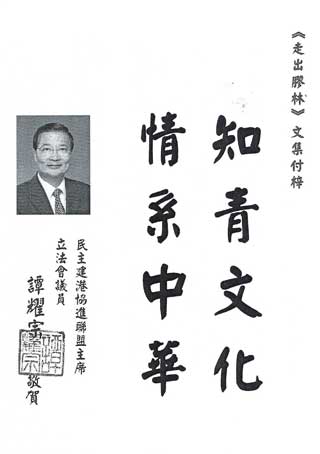 《走出膠林》文集付梓
知青文化
情系中華
民主建港協進聯盟主席
立法會議員
譚耀宗
敬賀